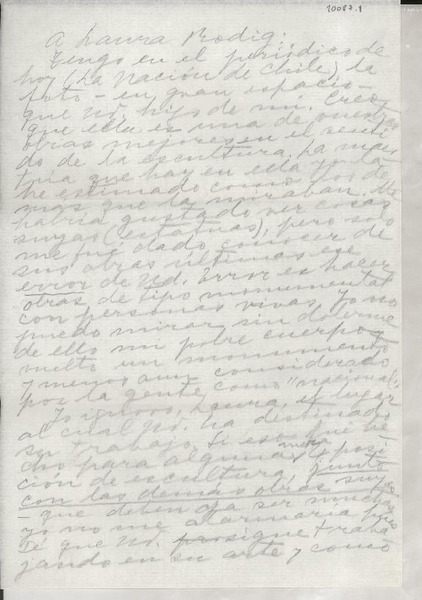 10083.1
A Laura Rodig:
Tengo en el periódico de
hoy (La Nación de Chile) la
foto - en gran espacio -
que Ud. hizo de mí. Creo
que ella es una de sus
obras mejores en el senti
do de la escultura. La maes
tría que hay en ella yo la
he estimado como los de
más que la miraban. Me
habría gustado ver cosas
suyas (estatuas), pero solo
me fué dado conocer de
sus obras últimas ese
error de Ud. Error es hacer
obras de tipo monumental
con personas vivas. Yo no
puedo mirar sin dolerme
de ello mi pobre cuerpo
vuelto un monumento
y menos aun considerado
por la gente como "nacional".
Yo ignoro, Laura, el lugar
al cual Ud. ha destinado
su trabajo. Si está hecho
para alguna mera exposi
ción de escultura, junto
con las demás obras suyas
que deben ya ser muchas
yo no me alarmaría pues
sé que Ud. prosigue traba
jando en su arte y como